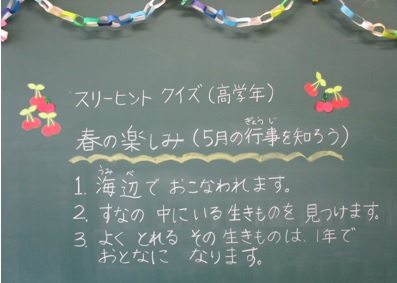 スリーヒント クイズ（高学年）
春の楽しみ（5月の行事を知ろう）
ぎょうじ
1. 海辺で おこなわれます。
うみべ
2. すなの 中にいる生きものを 見つけます。
3. よく とれる その生きものは、1年で
おとなに なります。